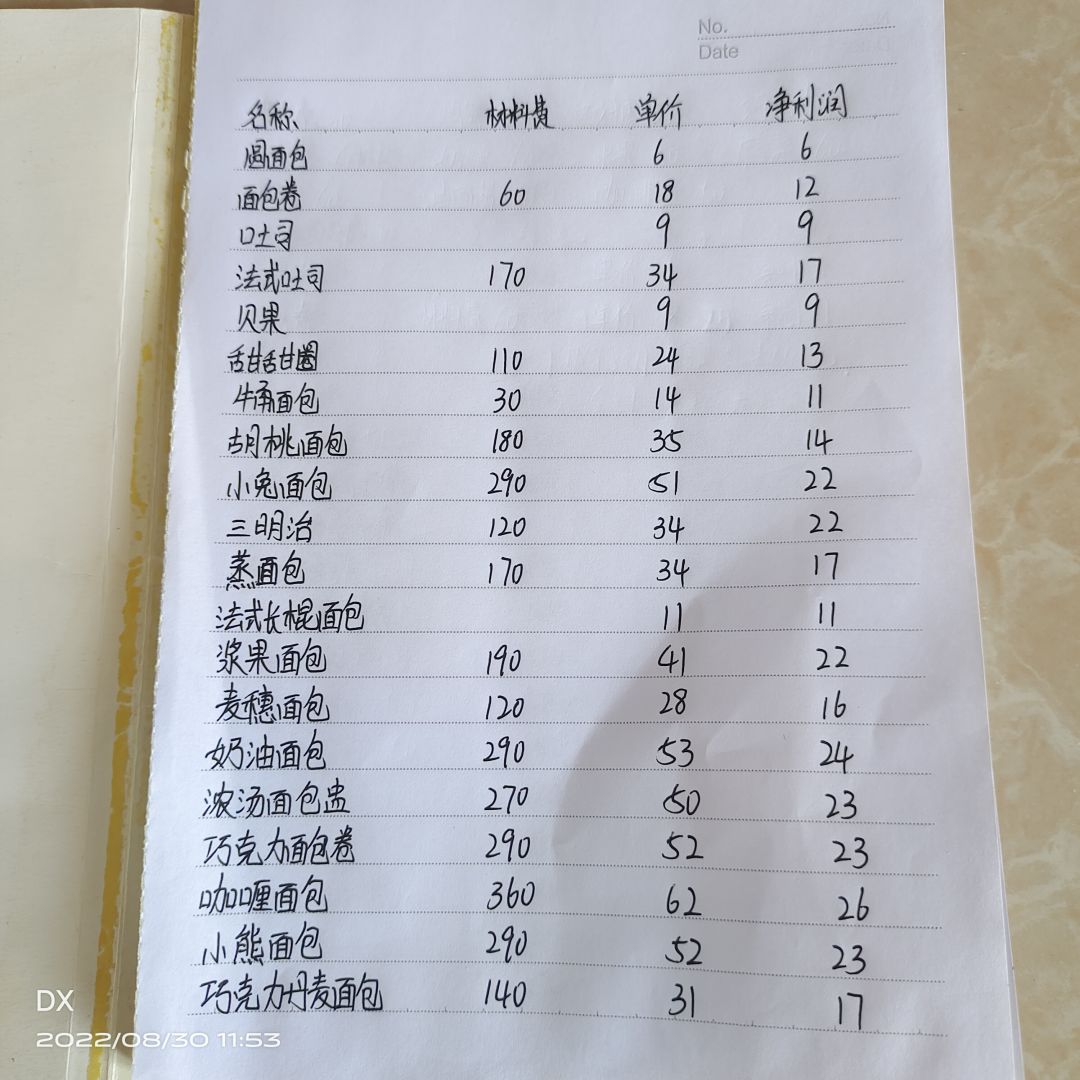 No.
Date
名称 材料费 单价 净利润
圆面包 6 6
面包卷 60 18 12
吐司 9 9
法式吐司 170 34 17
贝果 9 9
甜甜圈 110 24 13
牛角面包 30 14 11
胡桃面包 180 35 14
小兔面包 290 51 22
三明治 120 34 22
蒸面包 170 34 17
法式长棍面包 11 11
浆果面包 190 41 22
麦穗面包 120 28 16
奶油面包 290 53 24
浓汤面包盅 270 50 23
巧克力面包卷 290 52 23
咖喱面包 360 62 26
小熊面包 290 52 23
巧克力丹麦面包 140 31 17
DX
2022/08/30 11:53